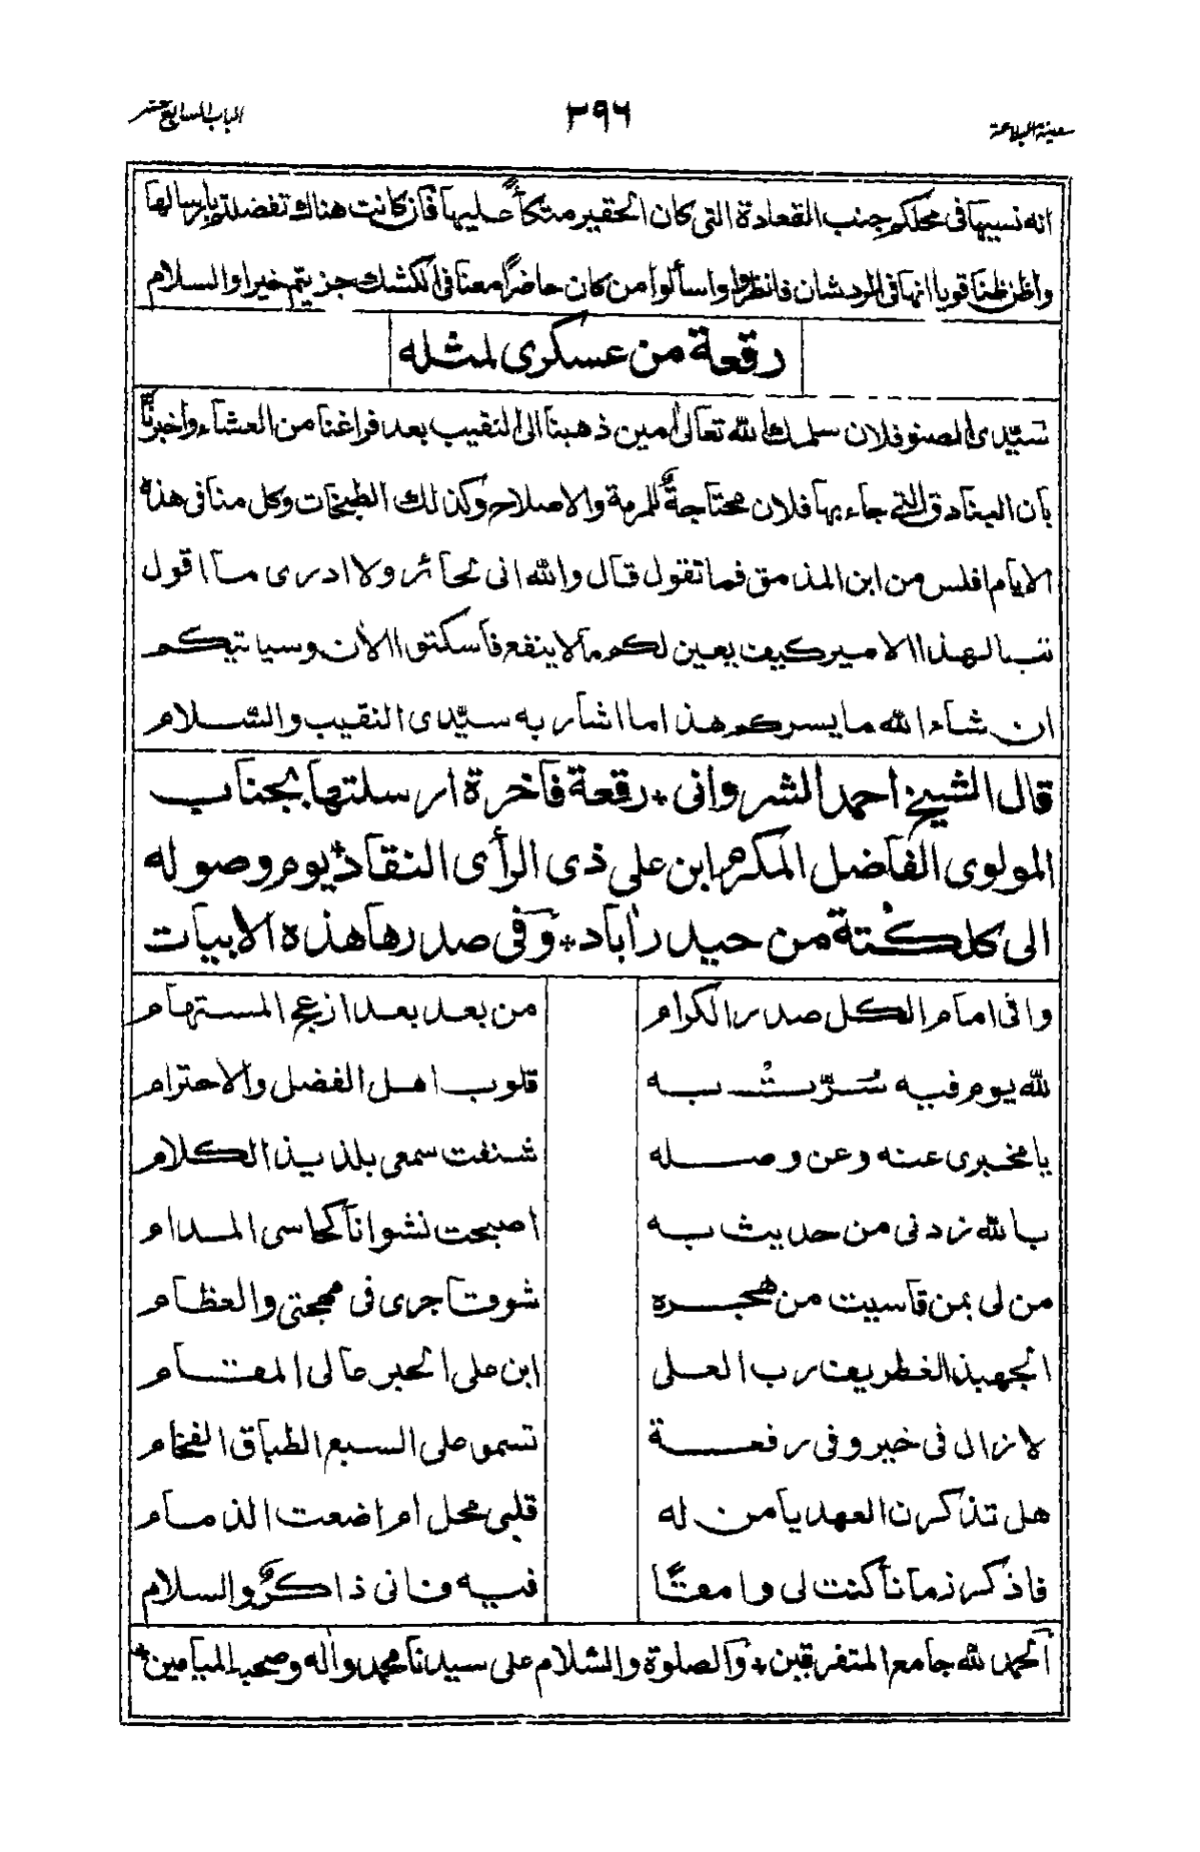 سفينة البلاغة
٣٩٦
الباب السابع عشر
انه نسيها فى محلكم جنب القعادة التى كان الحقير متكأً عليها فان كانت هناك تفضلتم بارسالها
واظن ظنا قويا انها فى الروشان فانظروا واسألوا من كان حاضرًا معنا فى الكشك جزيتم خيرا والسلام
رقعة من عسكرى لمثله
سيّدى الصنو فلان سلمك الله تعالى أمين ذهبنا الى النقيب بعد فراغنا من العشاء واخبرنا
بان البنادق التى جاء بها فلان محتاجةٌ للمرمة والاصلاح وكذلك الطبخات وكل منا فى هذه
الايام افلس من ابن المذمق فما تقول قال والله انى لحائر ولا ادرى ما اقول
تبا لهذا الامير كيف يعين لكم مالا ينفع فاسكتوا الأن وسياتيكم
ان شاء الله ما يسركم هذا ما اشار به سيّدى النقيب والسّلام
قال الشيخ احمد الشروانى ٭ رقعة فاخرة ارسلتها بجناب
المولوى الفاضل المكرم ابن على ذى الرأى النقاد ٭ يوم وصوله
الى كلكتة من حيدرأباد ٭ وفى صدرها هذه الابيات
وافى امام الكل صدر الكرام من بعد بعد ازعج المستهام
لله يوم فيه سُرّتْ به قلوب اهل الفضل والاحترام
يا مخبرى عنه وعن وصله شنفت سمعى بلذيذ الكلام
بالله زدنى من حديث به اصبحت نشوانا كحاسى المدام
من لى بمن قاسيت من هجره شوقا جرى فى مهجتى والعظام
الجهبذ الغطريف رب العلى ابن على الحبر عالى المقام
لا زال فى خير وفى رفعة تسمو على السبع الطباق الفخام
هل تذكرن العهد يا من له قلبى محل ام اضعت الذمام
فاذكر زمانا كنت لى وامقًا فيه فانى ذاكرٌ والسلام
الحمد لله جامع المتفرقين ٭ والصلوة والسّلام على سيدنا محمد وأله وصحبه الميامين ٭